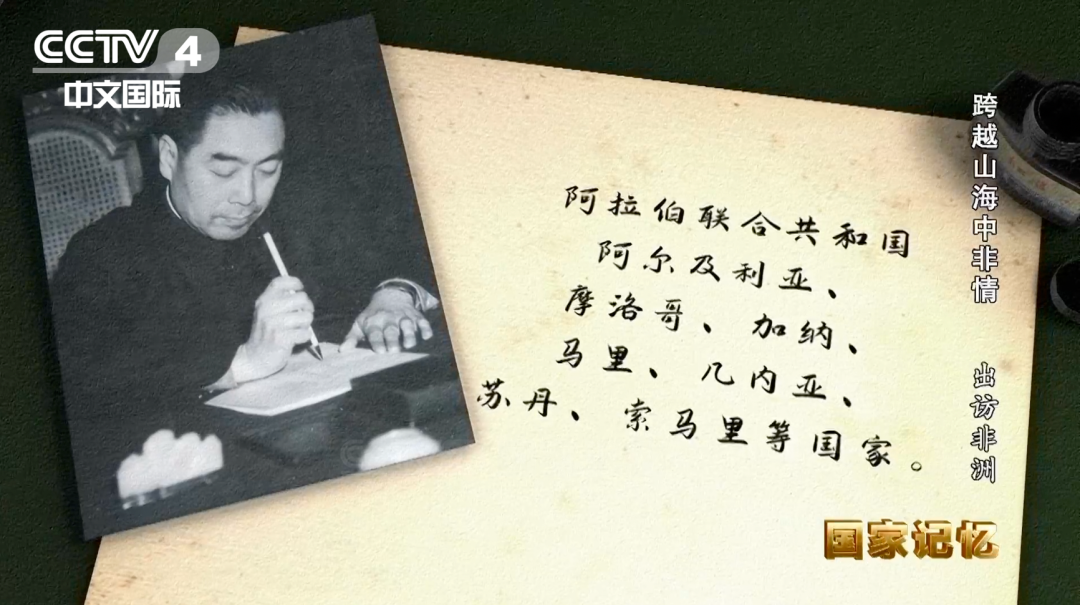 CCTV 4
中文国际
阿拉伯联合共和国
阿尔及利亚、
摩洛哥、加纳、
马里、几内亚、
苏丹、索马里等国家。
跨越山海中非情 出访非洲
国家记忆